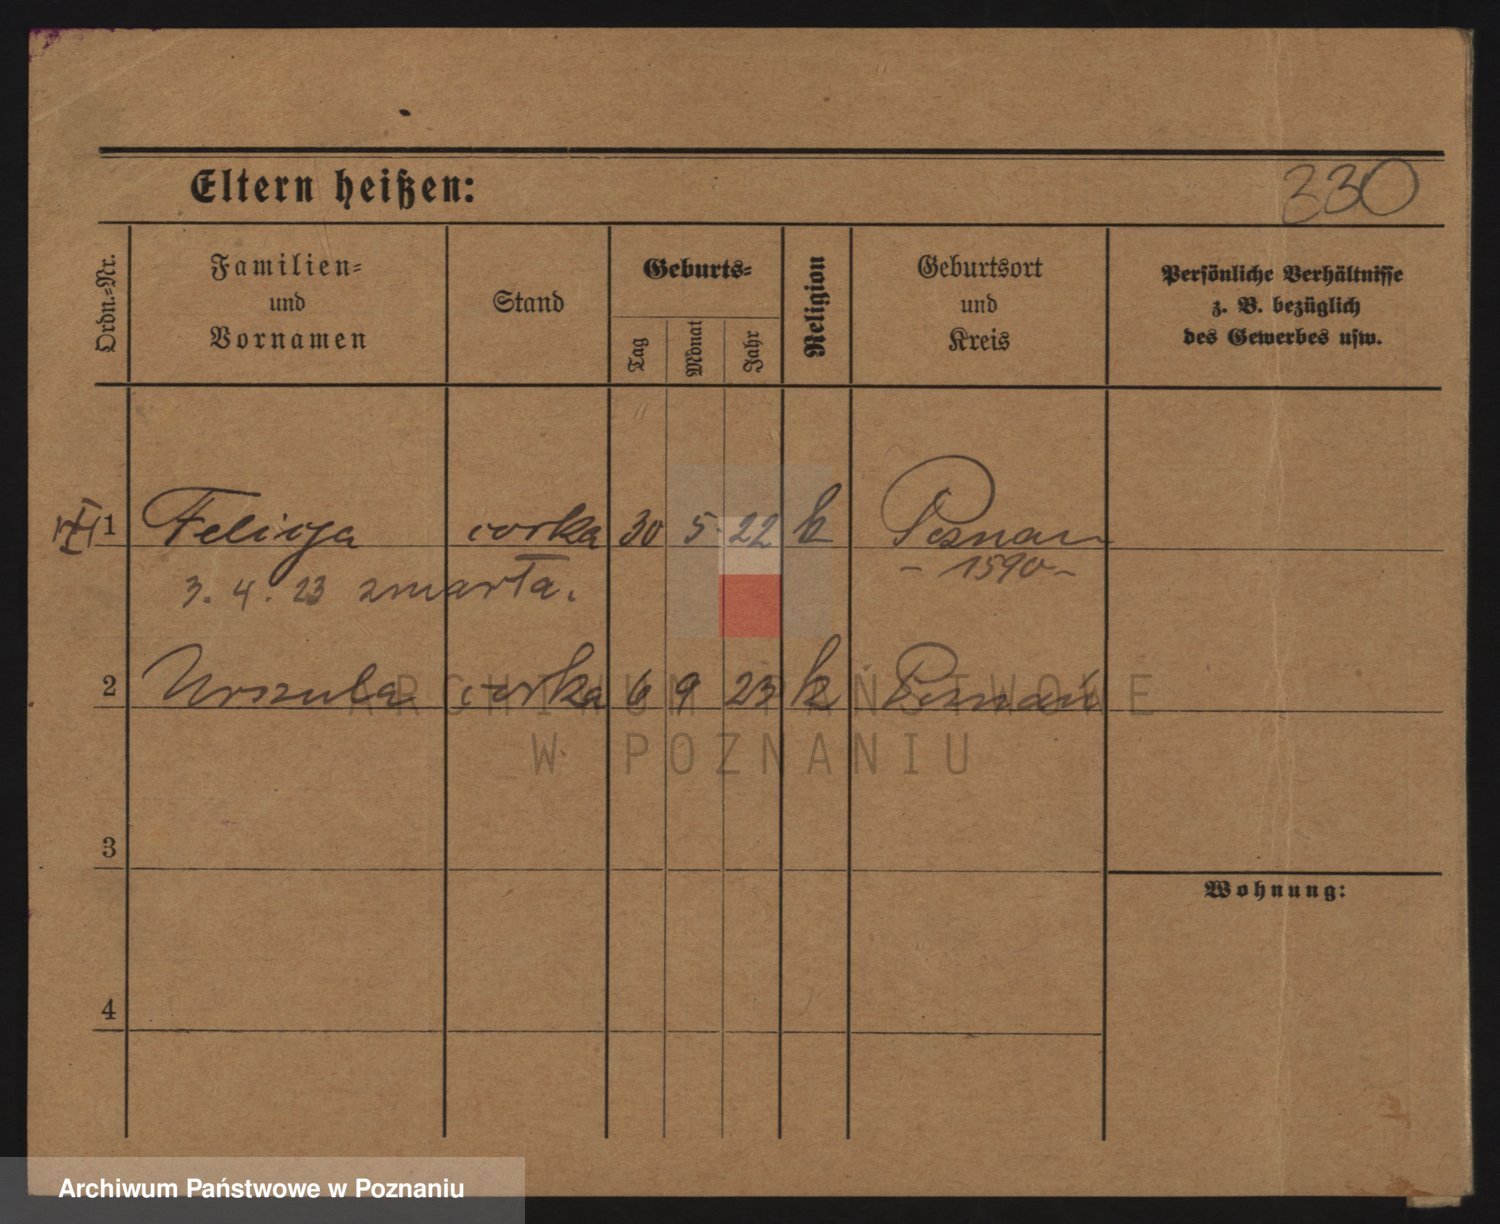 Eltern heißen:
330
Ordn.-Nr.
Familien-
und
Vornamen
Stand
Geburts-
Tag
Monat
Jahr
Religion
Geburtsort
und
Kreis
Persönliche Verhältnisse
z. B. bezüglich
des Gewerbes usw.
1 Felicja corka 30 5. 22 k Poznan
- 1590 -
3. 4. 23 zmarła.
2 Urszula corka 6 9 23 k Poznań
ARCHIWUM PAŃSTWOWE
W POZNANIU
3
Wohnung:
4
Archiwum Państwowe w Poznaniu